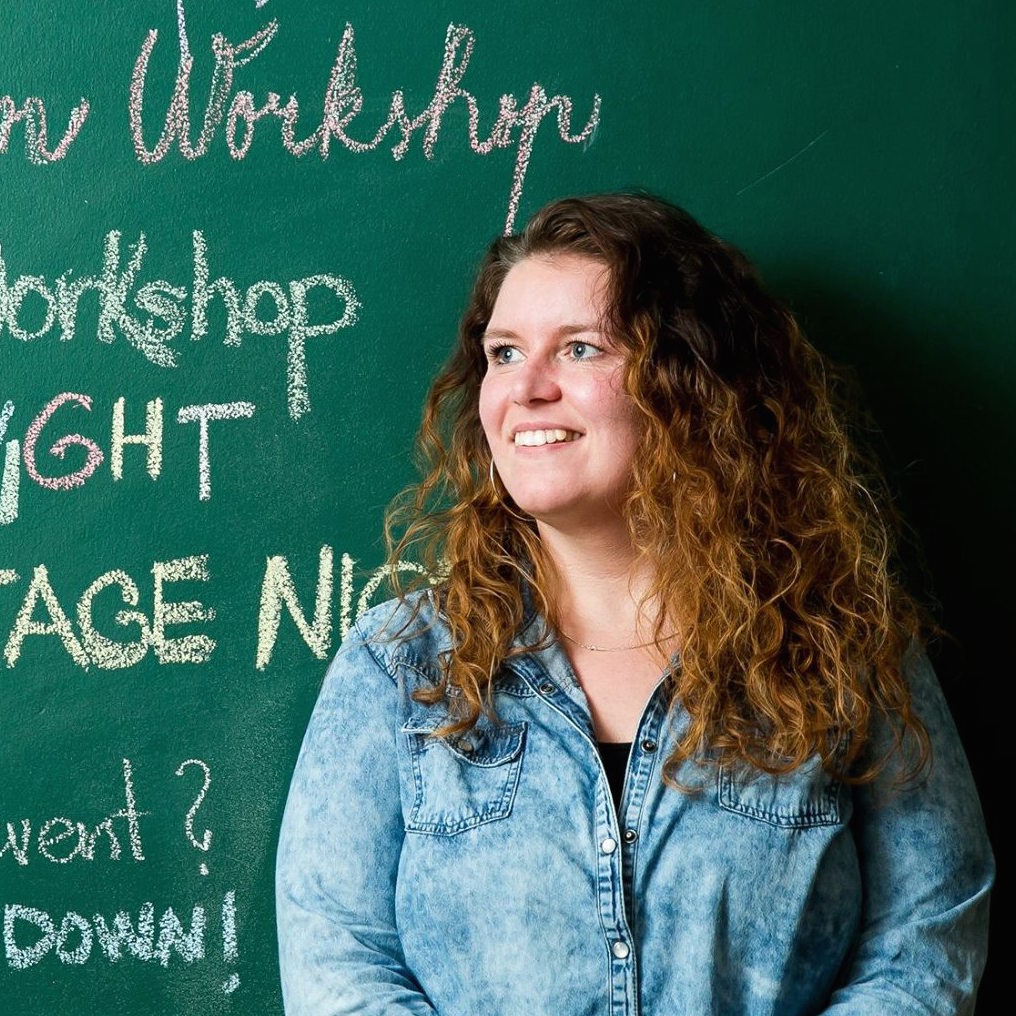 on Workshop
Workshop
IGHT
TAGE NIG
vent ?
DOWN!